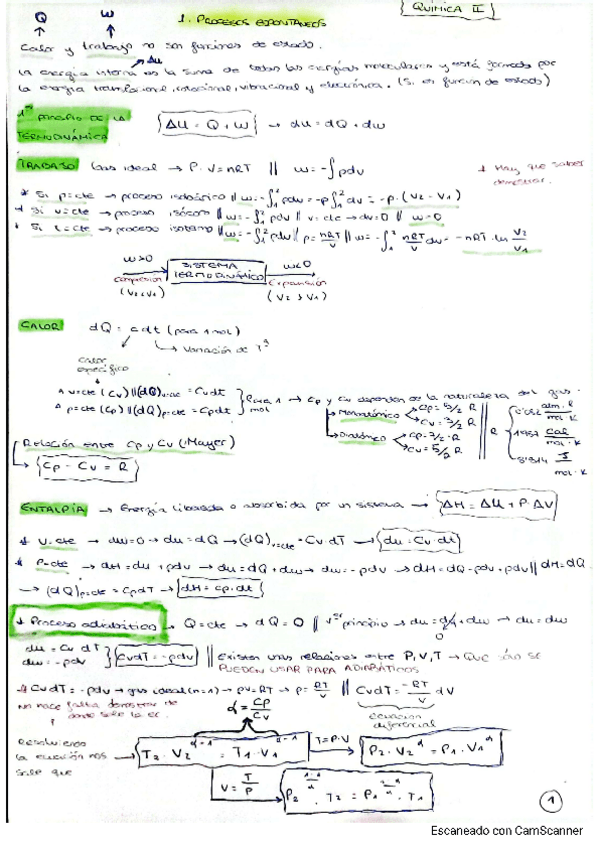 QUÍMICA II
1. PROCESOS ESPONTÁNEOS
Q W
Calor y trabajo no son funciones de estado.
ΔU
La energía interna es la suma de todas las energías moleculares y está formada por
la energía translacional, rotacional, vibracional y electrónica. (Sí es función de estado)
1er PRINCIPIO DE LA TERMODINÁMICA { ΔU = Q + W } → dU = dQ + dW
TRABAJO Gas ideal → P·V = nRT || w = -∫pdv
* Hay que saber demostrar.
* Si p=cte → proceso isobárico || w = -∫₁² pdv = -p∫₁² dv = -p·(V2 - V1)
* Si v=cte → proceso isócoro || w = -∫₁² pdv || v=cte → dv=0 || w=0
* Si t=cte → proceso isotermo || w = -∫₁² pdv || p = nRT/V || w = -∫₁² nRT/V dv = -nRT · ln V2/V1
w>0 SISTEMA TERMODINÁMICO w<0
Compresión (V2<V1) Expansión (V2>V1)
CALOR dQ = c dt (para 1 mol)
Calor específico → Variación de Tª
Δ v=cte (Cv) || (dQ)v=cte = Cvdt
Δ p=cte (Cp) || (dQ)p=cte = Cpdt
} para 1 mol → Cp y Cv dependen de la naturaleza del gas.
→ Monoatómico Cp = 5/2 R Cv = 3/2 R
→ Diatómico Cp = 7/2 R Cv = 5/2 R
R { 0'082 atm·l/mol·K
1'987 cal/mol·K
8'314 J/mol·K
Relación entre Cp y Cv (Mayer)
→ { Cp - Cv = R }
ENTALPÍA → Energía liberada o absorbida por un sistema → { ΔH = ΔU + P·ΔV }
* V=cte → dw=0 → du = dQ → (dQ)v=cte = Cv dT → { du = Cv·dt }
* P=cte → dH = du + pdv → du = dQ + dw → dw = -pdv → dH = dQ - pdv + pdv || dH = dQ
→ (dQ)p=cte = CpdT → { dH = Cp·dt }
* Proceso adiabático → Q=cte → dQ=0 || 1er principio → du = dQ + dw → du = dw
0
du = Cv dT
dw = -pdv
} { CvdT = -pdv } || Existen unas relaciones entre P, V, T → Que sólo se
PUEDEN USAR PARA ADIABÁTICOS
* CvdT = -pdv → gas ideal (n=1) → pv = RT → p = RT/V || CvdT = -RT/V dV
No hace falta demostrar de donde sale la ec.
α = Cp/Cv
ecuación diferencial
Resolviendo la ecuación nos sale que
→ T2·V2^(α-1) = T1·V1^(α-1) T=P·V → P2·V2^α = P1·V1^α
V = T/P → P2^((1-α)/α) · T2 = P1^((1-α)/α) · T1
1
Escaneado con CamScanner